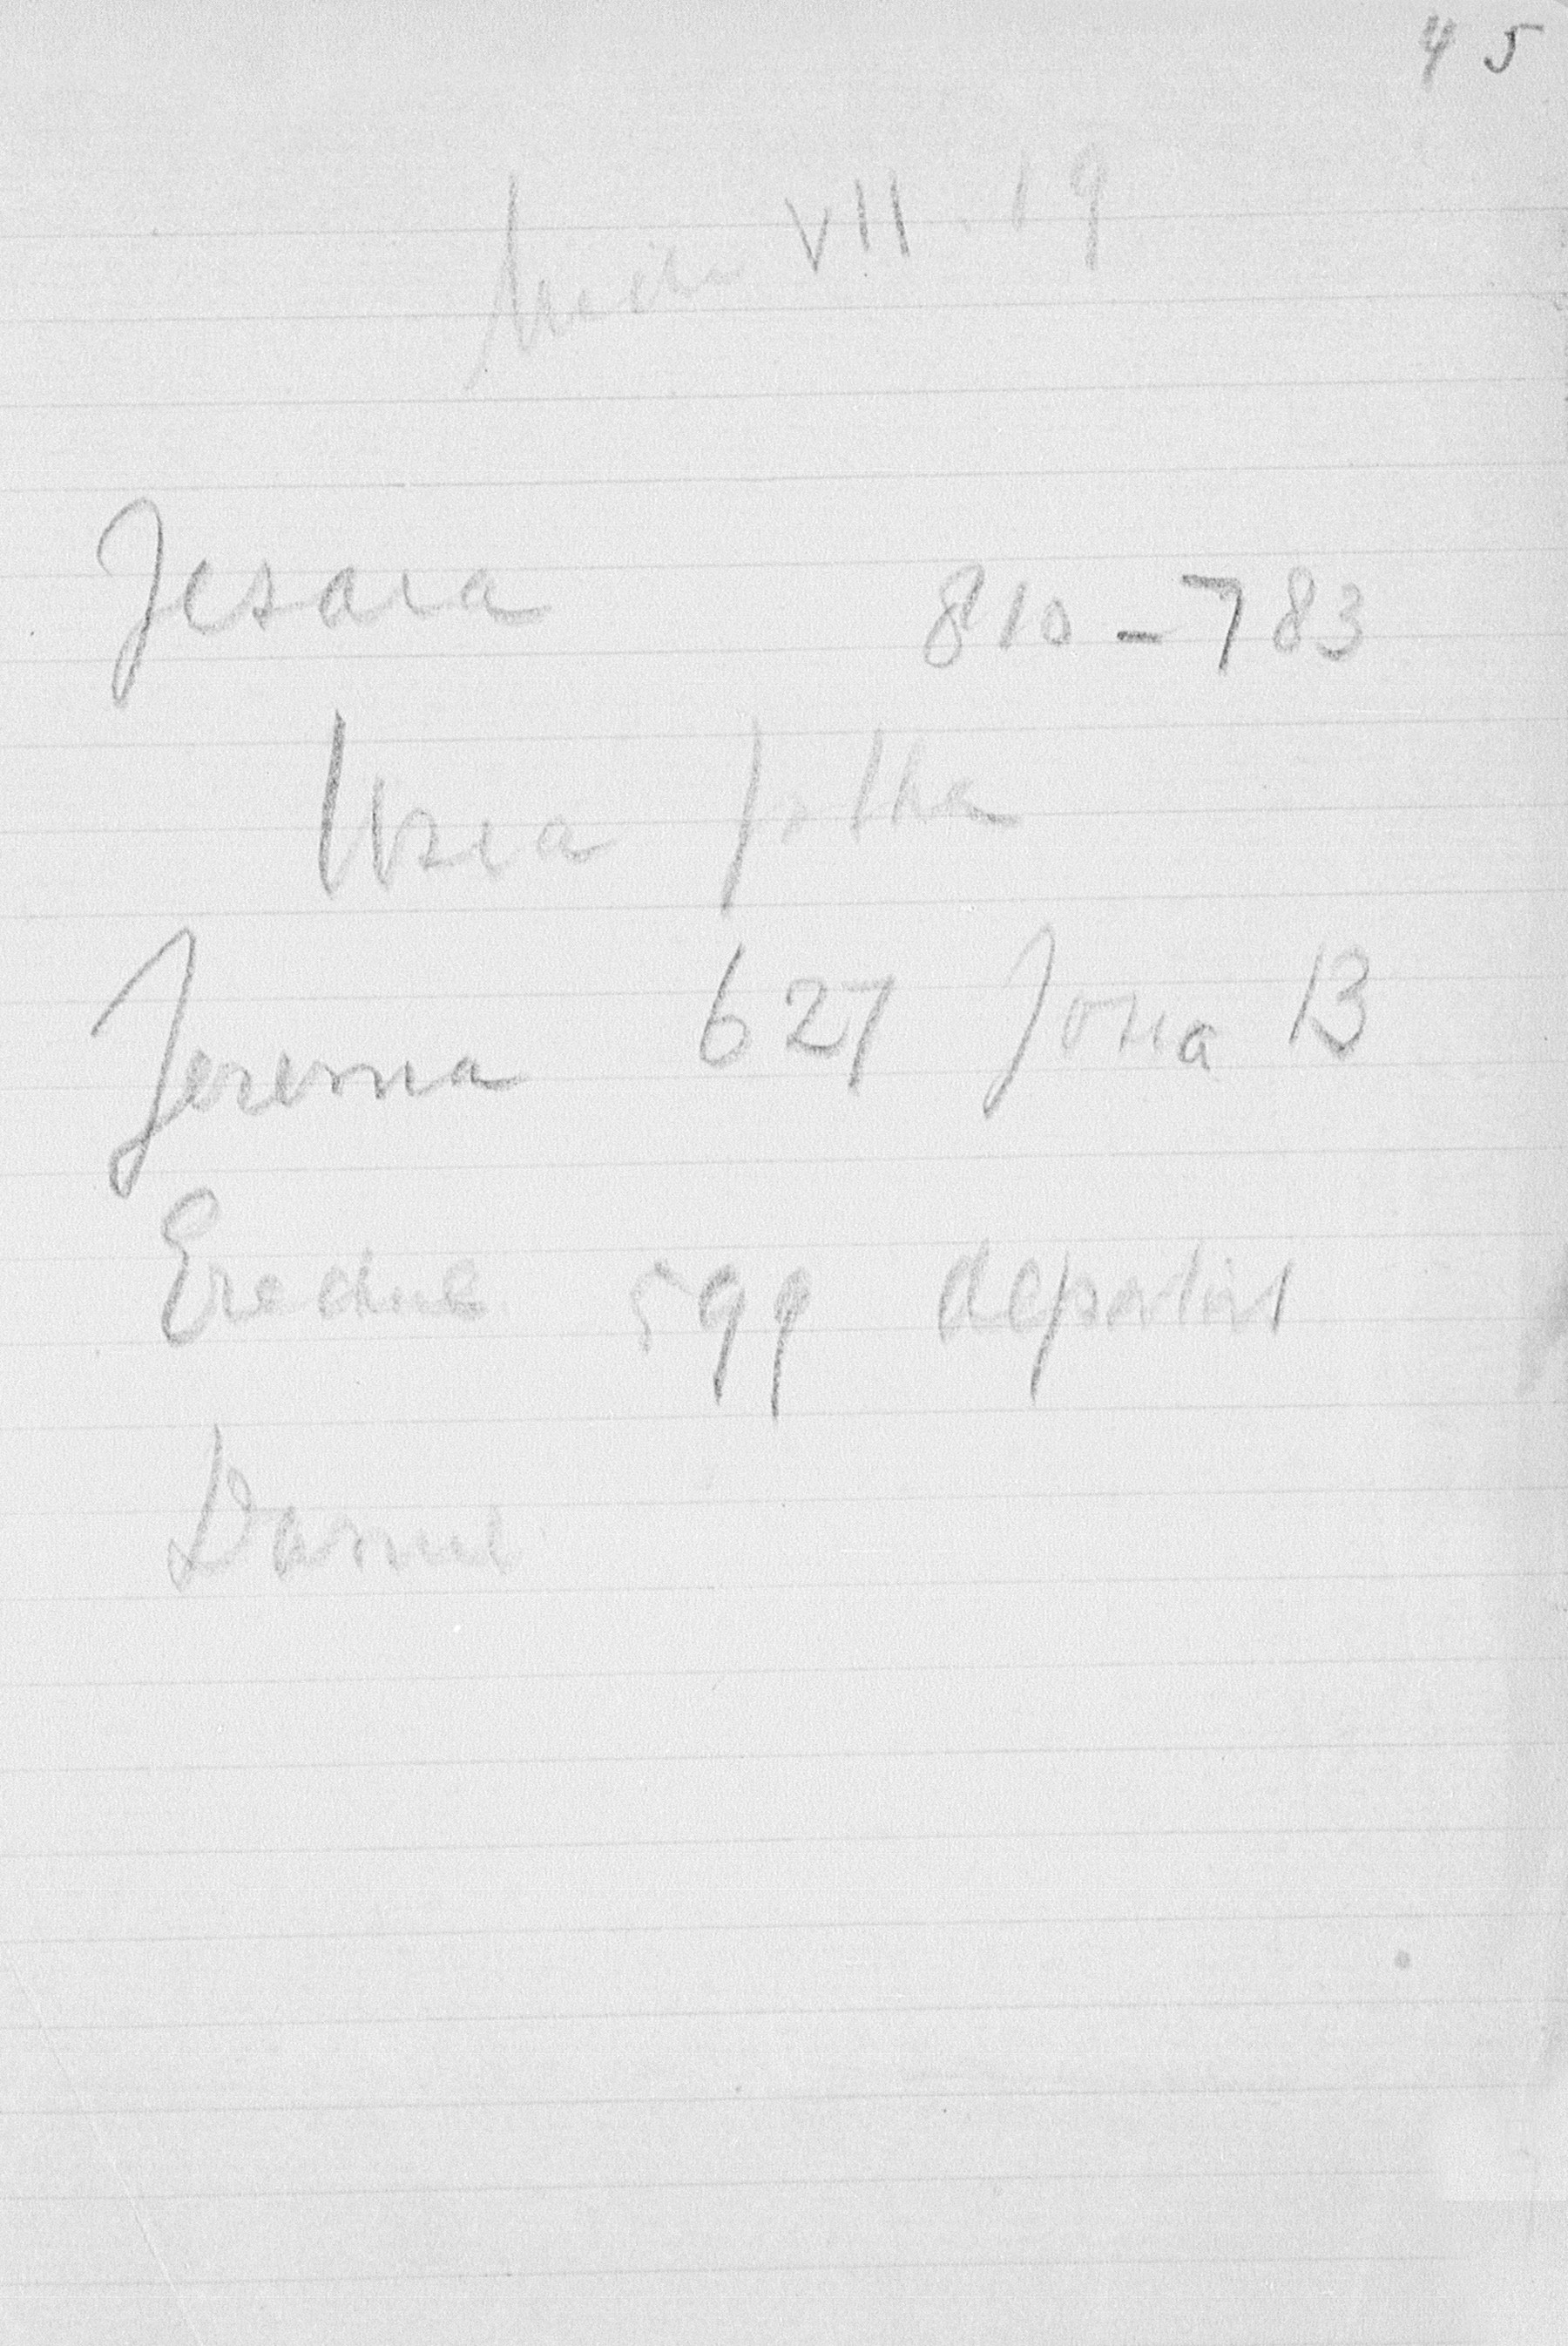 45
Micha VII. 19
Jesaia 810–783
Usia Jotha
Jeremia 627 Josia 13
Ezechiel 599 deportirt
Daniel